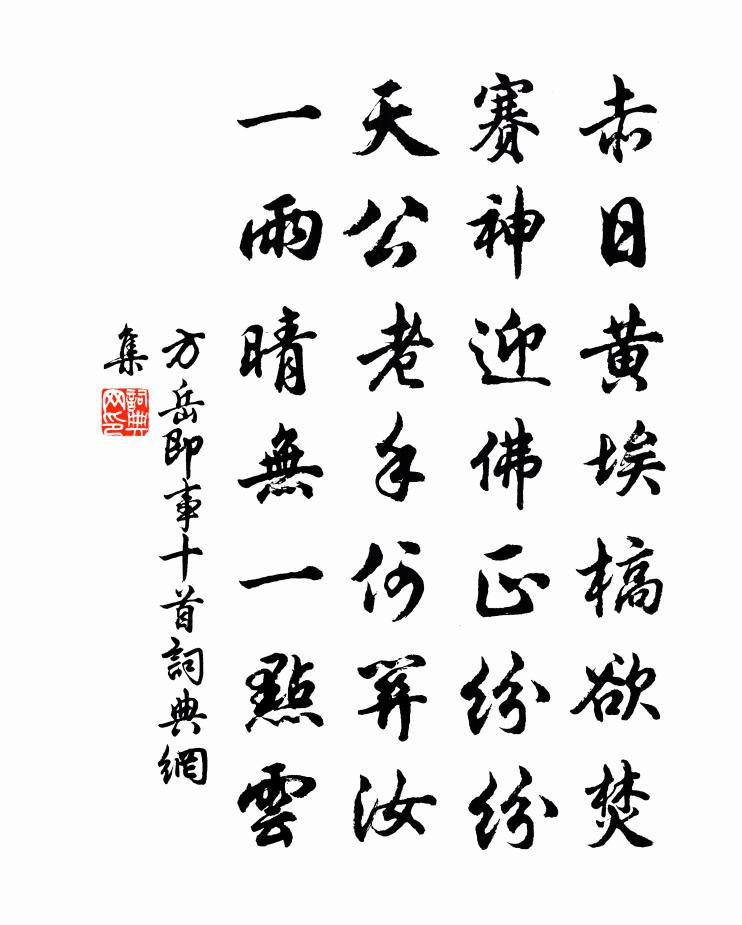 赤日黄埃槁欲焚
賽神迎佛正紛紛
天公老手何算汝
一雨晴無一點雲
方岳即事十首詞典網
集
詞典
网印